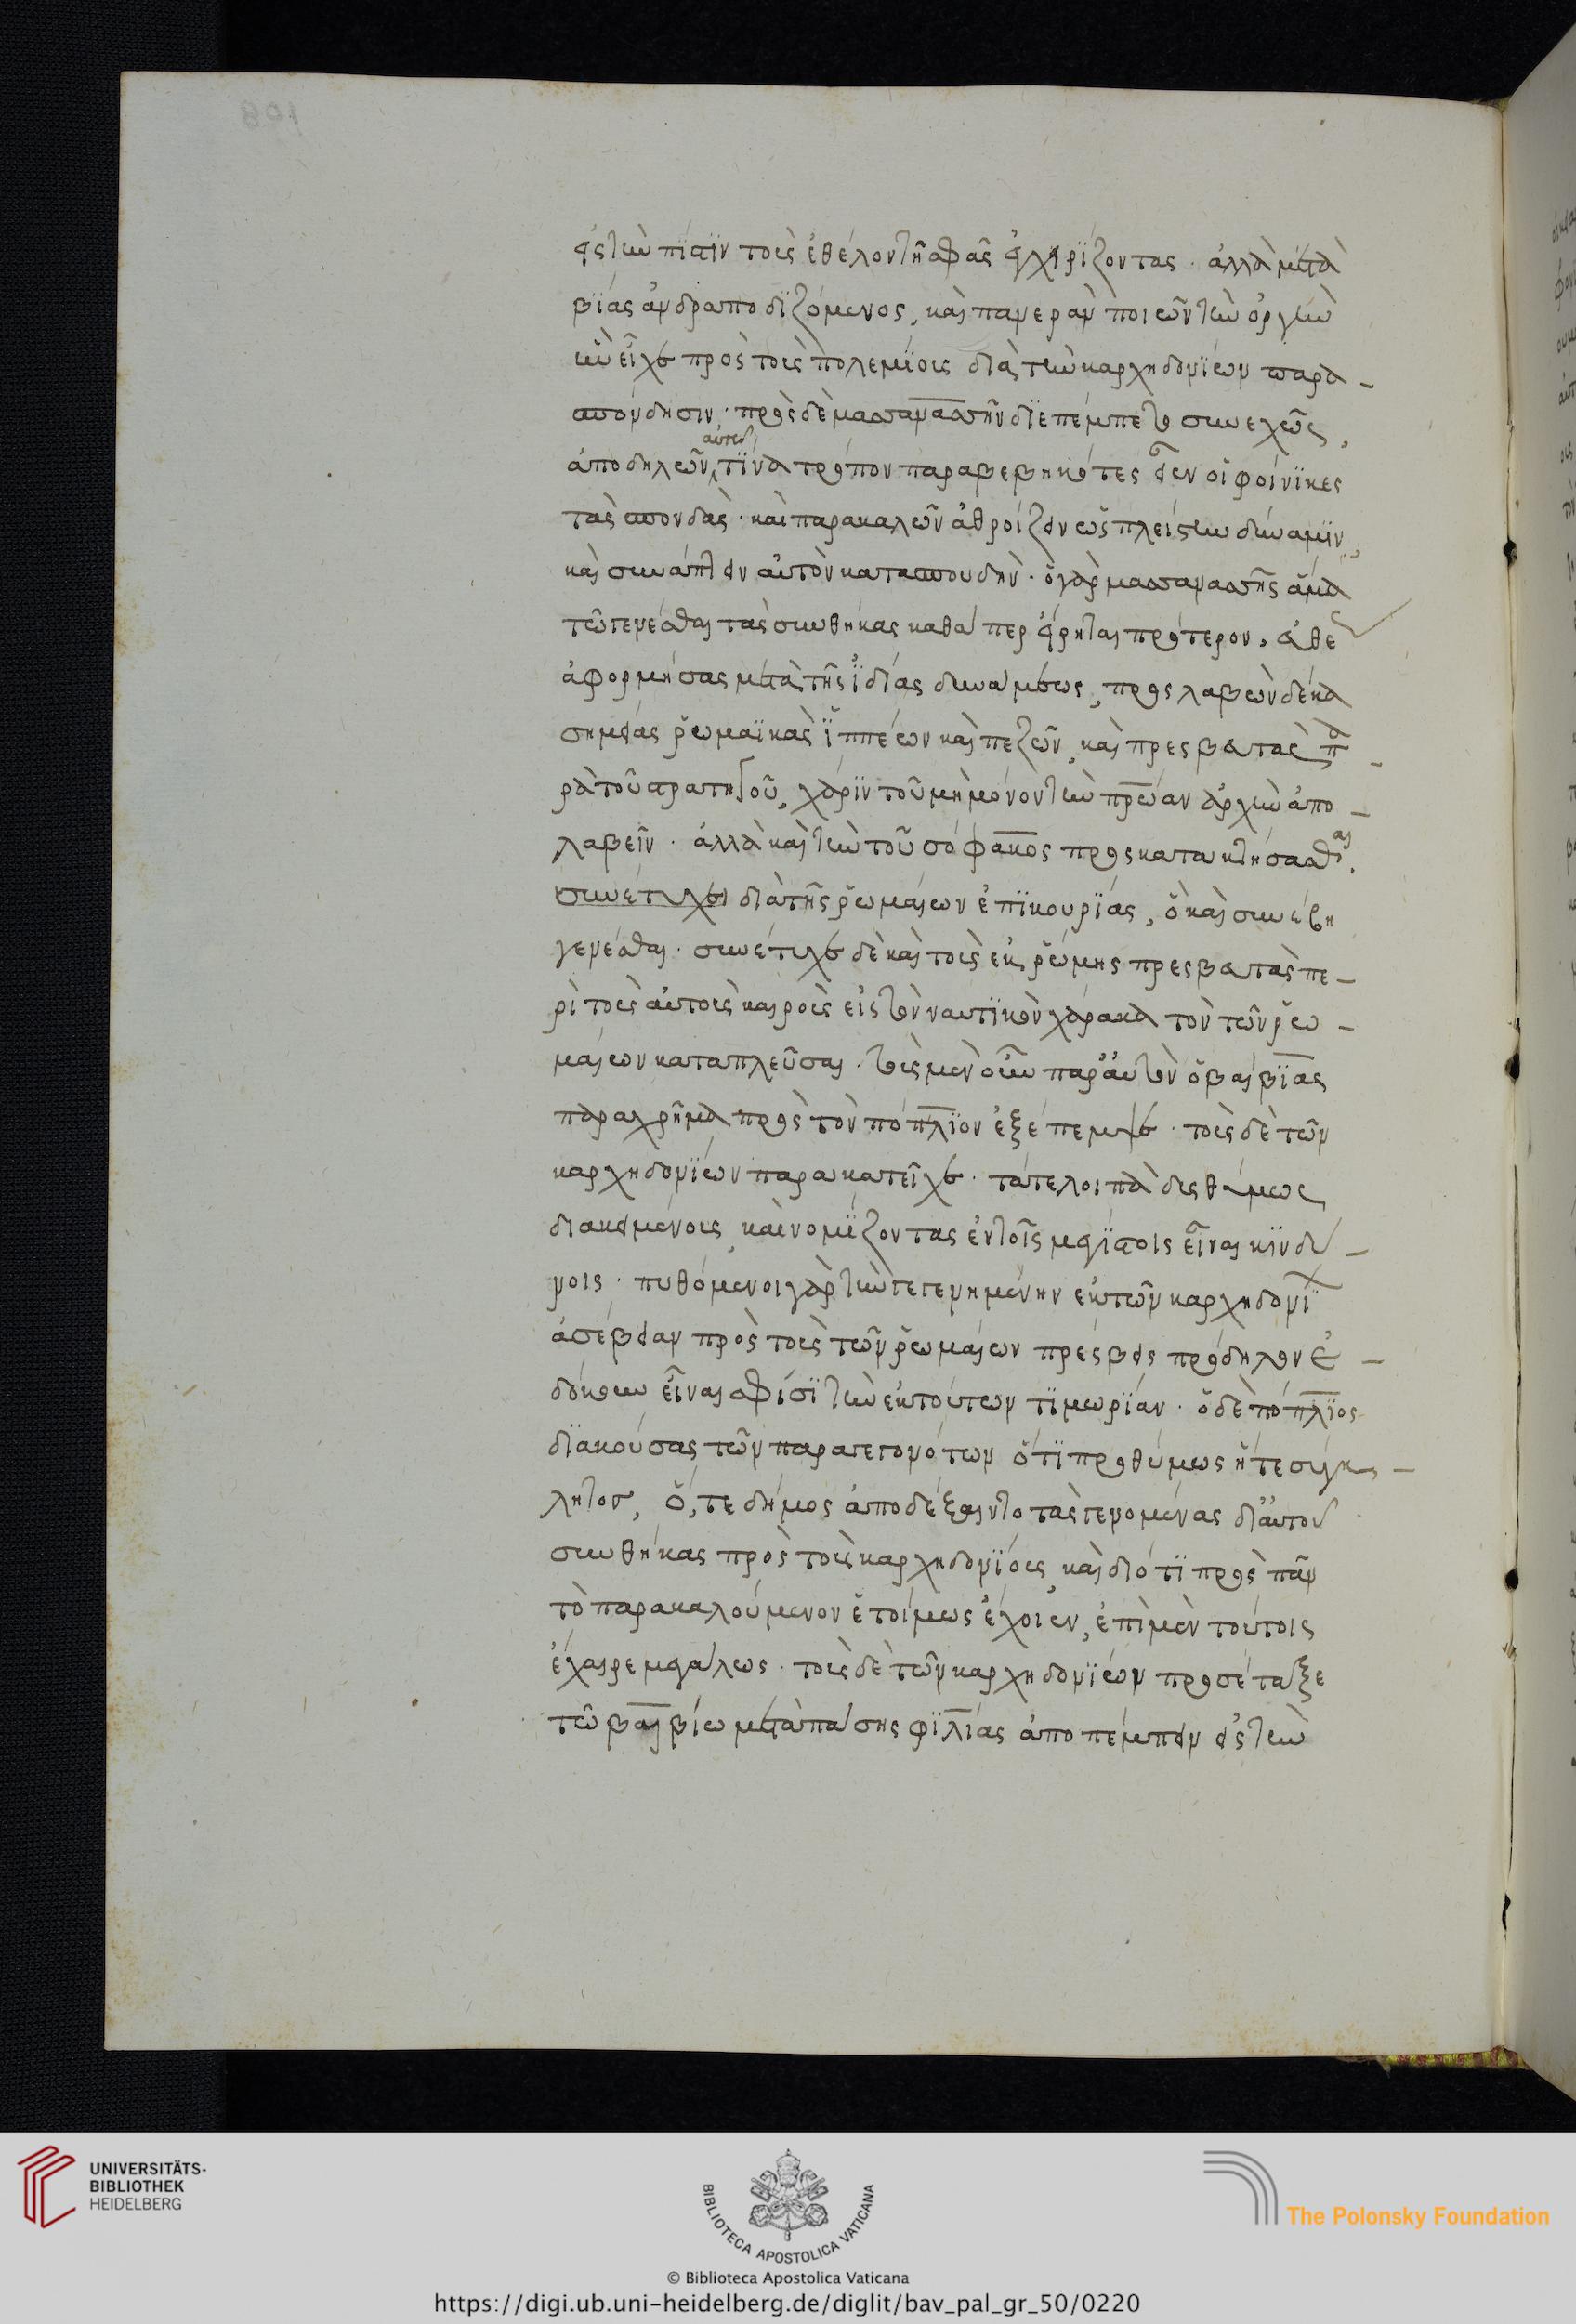 εἰς τὴν πίστιν τοὺς ἐθελοντὴν σφᾶς ἐγχειρίζοντας · ἀλλὰ μετὰ
βίας ἀνδραποδιζόμενος, καὶ πανερὰν ποιῶν τὴν ὀργὴν
ἣν εἶχε πρὸς τοὺς πολεμίους διὰ τὴν καρχηδονίων παρα-
σπόνδησιν · πρὸς δὲ μασσανάσσην διεπέμπετο συνεχῶς,
ἀποδηλῶν αὐτῶ τίνα τρόπον παραβεβηκότες εἶεν οἱ φοίνικες
τὰς σπονδὰς · καὶ παρακαλῶν ἀθροίζειν ὡς πλείστην δύναμιν,
καὶ συνάπτειν αὐτὸν κατασπουδὴν · ὁ γὰρ μασσανάσσης ἅμα
τῶ γενέσθαι τὰς συνθήκας καθάπερ εἴρηται πρότερον, εὐθέως
ἀφορμήσας μετὰ τῆς ἰδίας δυνάμεως, προσλαβὼν δέκα
σημείας ῥωμαϊκὰς ἱππέων καὶ πεζῶν, καὶ πρεσβευτὰς πα-
ρὰ τοῦ στρατηγοῦ, χάριν τοῦ μὴ μόνον τὴν πατρώαν ἀρχὴν ἀπο-
λαβεῖν · ἀλλὰ καὶ τὴν τοῦ σόφακος προσκατακτήσασθαι.
συνέτυχε διὰ τῆς ῥωμαίων ἐπικουρίας, ὃ καὶ συνέβη
γενέσθαι · συνέτυχε δὲ καὶ τοὺς ἐκ ῥώμης πρεσβευτὰς πε-
ρὶ τοὺς αὐτοὺς καιροὺς εἰς τὸν ναυτικὸν χάρακα τὸν τῶν ῥω-
μαίων καταπλεῦσαι · τοὺς μὲν οὖν παρ' αὐτὸν ὁ βαίβιας
παραχρῆμα πρὸς τὸν πόπλιον ἐξέπεμψε · τοὺς δὲ τῶν
καρχηδονίων παρακατεῖχε · τά τε λοιπὰ δυσθύμως
διακειμένους, καὶ νομίζοντας ἐν τοῖς μεγίστοις εἶναι κινδύ-
νοις · πυθόμενοι γὰρ τὴν γεγενημένην ἐκ τῶν καρχηδονί
ἀσέβειαν πρὸς τοὺς τῶν ῥωμαίων πρέσβεις πρόδηλον ἐ-
δόκουν εἶναι σφίσι τὴν ἐκ τούτων τιμωρίαν · ὁ δὲ πόπλιος
διακούσας τῶν παραγεγονότων ὅτι προθύμως ἥ τε σύγκ-
λητος, ὅ, τε δῆμος ἀποδέξαιντο τὰς γενομένας δι' αὐτοῦ
συνθήκας πρὸς τοὺς καρχηδονίους, καὶ διότι πρὸς πᾶν
τὸ παρακαλούμενον ἑτοίμως ἔχοιεν, ἐπὶ μὲν τούτοις
ἔχαιρε μεγάλως · τοὺς δὲ τῶν καρχηδονίων προσέταξε
τῶ βαιβίω μετὰ πάσης φιλίας ἀποπέμπειν εἰς τὴν
UNIVERSITÄTS-
BIBLIOTHEK
HEIDELBERG
BIBLIOTECA APOSTOLICA VATICANA
The Polonsky Foundation
© Biblioteca Apostolica Vaticana
https://digi.ub.uni-heidelberg.de/diglit/bav_pal_gr_50/0220